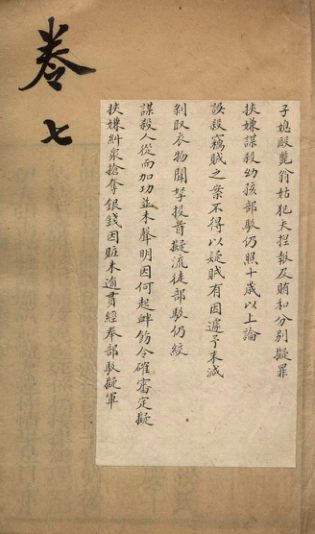 卷七
子媳毆斃翁姑犯夫捏報及賄和分別擬罪
挾嫌謀殺幼孩部駁仍照十歲以上論
誤殺竊賊之案不得以疑賊有因遽予末減
剝取衣物聞拏投首擬流徒部駁仍絞
謀殺人從而加功並未聲明因何起衅飭令確審定擬
挾嫌糾衆搶奪銀錢因贓未逾貫經奉部駁擬軍